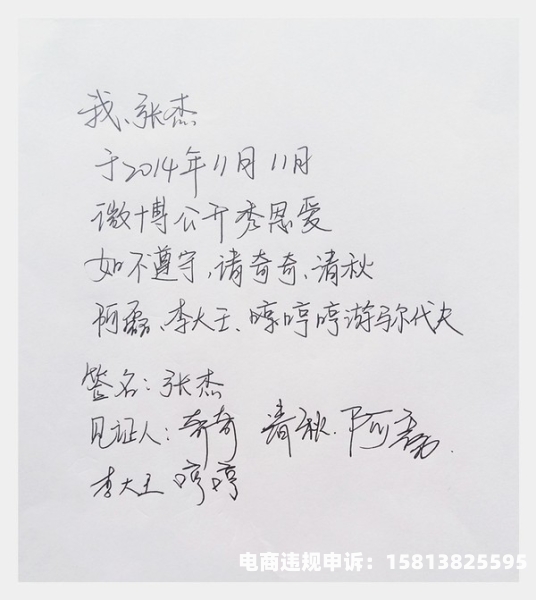 我、张杰
于2014年11月11日
微博公开秀恩爱
如不遵守,请奇奇、清秋
阿磊、李大王、哼哼哼游马尔代夫
签名:张杰
见证人:奇奇 清秋 阿磊.
李大王 哼哼
电商违规申诉:15813825595